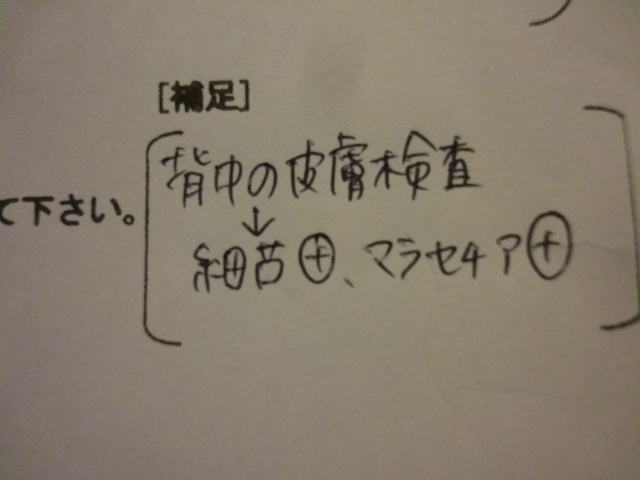 [補足]
背中の皮膚検査
て下さい。
↓
細菌⊕、マラセチア⊕